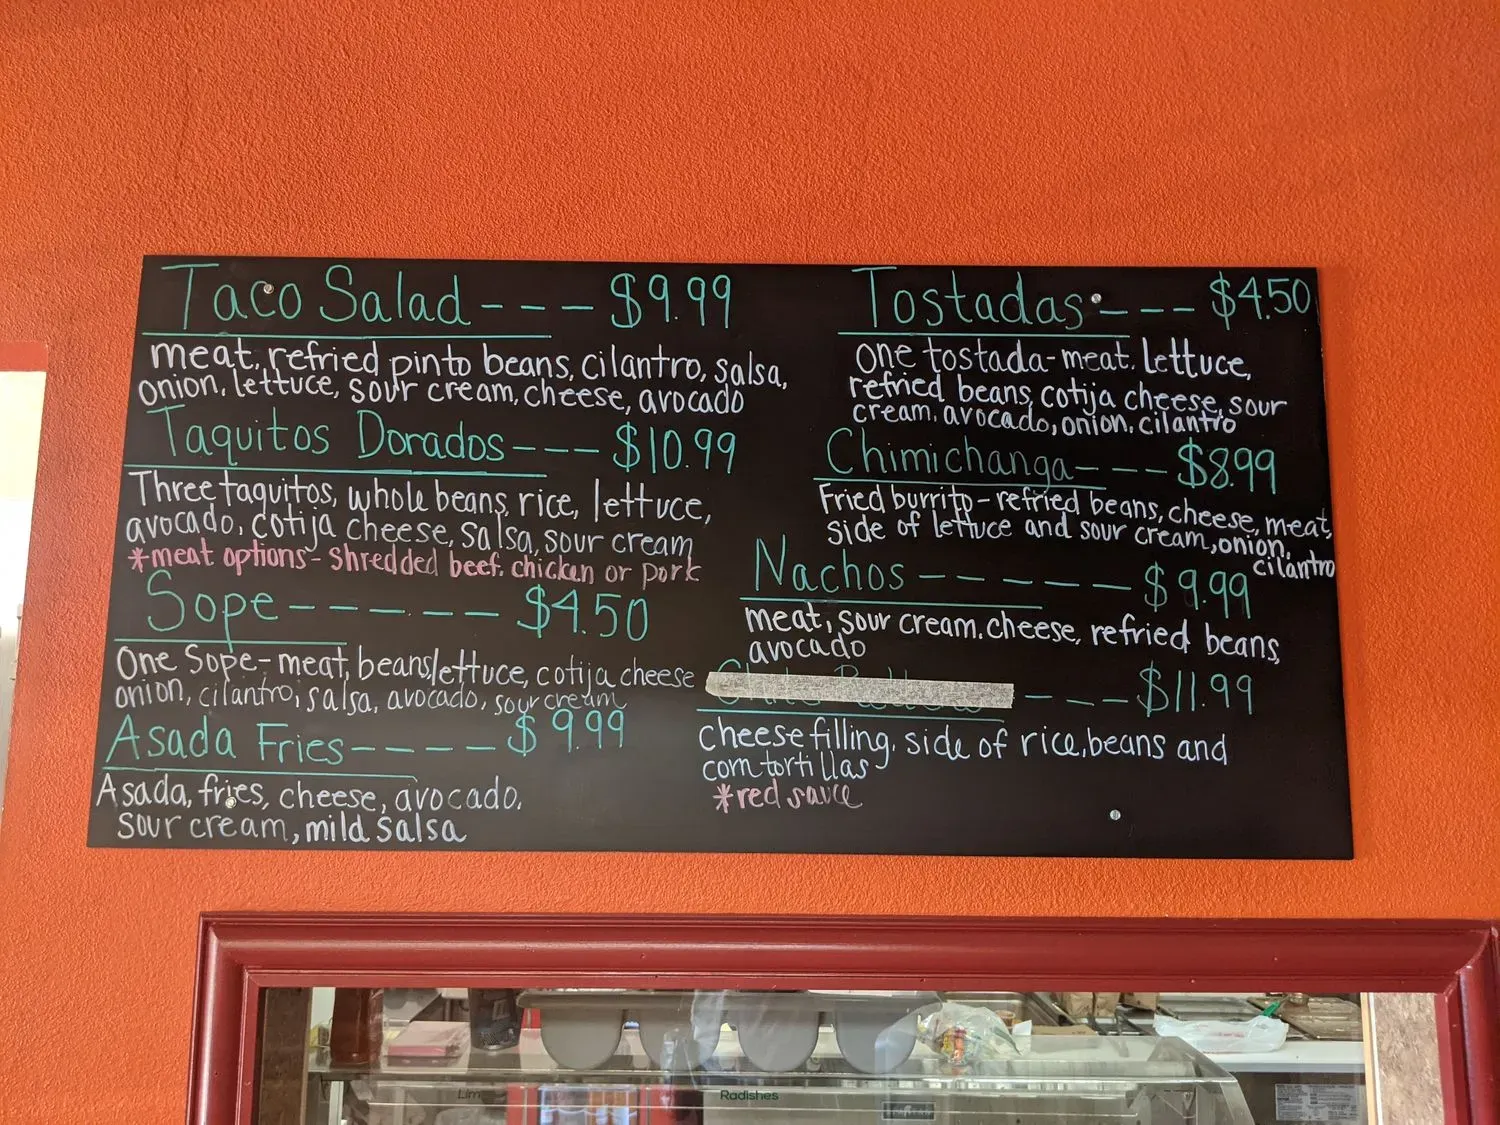 Taco Salad --- $9.99
meat, refried pinto beans, cilantro, salsa,
onion, lettuce, sour cream, cheese, avocado
Taquitos Dorados --- $10.99
Three taquitos, whole beans, rice, lettuce,
avocado, cotija cheese, salsa, sour cream
*meat options- Shredded beef, chicken or pork
Sope ----- $4.50
One Sope- meat, beans, lettuce, cotija cheese
onion, cilantro, salsa, avocado, sour cream
Asada Fries ---- $9.99
Asada, fries, cheese, avocado,
Sour cream, mild salsa
Tostadas --- $4.50
one tostada-meat, lettuce,
refried beans, cotija cheese, sour
cream, avocado, onion, cilantro
Chimichanga --- $8.99
Fried burrito-refried beans, cheese, meat,
side of lettuce and sour cream, onion,
cilantro
Nachos ----- $9.99
meat, sour cream, cheese, refried beans,
avocado
--- $11.99
cheese filling, side of rice, beans and
corn tortillas
*red sauce
Radishes